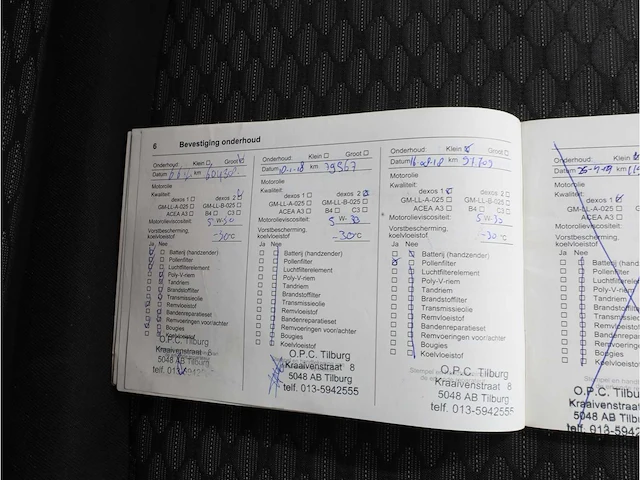 6 Bevestiging onderhoud
Onderhoud: Klein Groot
Datum km
Motorolie
Kwaliteit:
dexos 1 dexos 2
GM-LL-A-025 GM-LL-B-025
ACEA A3 B4 C3
Motorolieviscositeit: 5 W-30
Vorstbescherming,
koelvloeistof -30°C
Ja Nee
Batterij (handzender)
Pollenfilter
Luchtfilterelement
Poly-V-riem
Tandriem
Brandstoffilter
Transmissieolie
Remvloeistof
Bandenreparatieset
Remvoeringen voor/achter
Bougies
Koelvloeistof
O.P.C. Tilburg
Kraaivenstraat 8
5048 AB Tilburg
telf. 013-5942
Onderhoud: Klein Groot
Datum km 79567
Motorolie
Kwaliteit:
dexos 1 dexos 2
GM-LL-A-025 GM-LL-B-025
ACEA A3 B4 C3
Motorolieviscositeit: 5 W-30
Vorstbescherming,
koelvloeistof -30°C
Ja Nee
Batterij (handzender)
Pollenfilter
Luchtfilterelement
Poly-V-riem
Tandriem
Brandstoffilter
Transmissieolie
Remvloeistof
Bandenreparatieset
Remvoeringen voor/achter
Bougies
Koelvloeistof
O.P.C. Tilburg
Kraaivenstraat 8
5048 AB Tilburg
telf. 013-5942555
Onderhoud: Klein Groot
Datum km 97.709
Motorolie
Kwaliteit:
dexos 1 dexos 2
GM-LL-A-025 GM-LL-B-025
ACEA A3 B4 C3
Motorolieviscositeit: 5 W-30
Vorstbescherming,
koelvloeistof -30°C
Ja Nee
Batterij (handzender)
Pollenfilter
Luchtfilterelement
Poly-V-riem
Tandriem
Brandstoffilter
Transmissieolie
Remvloeistof
Bandenreparatieset
Remvoeringen voor/achter
Bougies
Koelvloeistof
O.P.C. Tilburg
Kraaivenstraat 8
5048 AB Tilburg
telf. 013-5942555
Onderhoud: Klein
Datum km
Motorolie
Kwaliteit:
dexos 1
GM-LL-A-025
ACEA A3
Motorolieviscositeit:
Vorstbescherming,
koelvloeistof
Ja Nee
Batterij (handzen
Pollenfilter
Luchtfilterele
Poly-V-riem
Tandriem
Brandstoffilter
Transmissie
Remvloeistof
Bandenrepara
Remvoeringen
Bougies
Koelvloeistof
O.P.C. Tilburg
Kraaivenstraat
5048 AB Tilbu
telf. 013-594